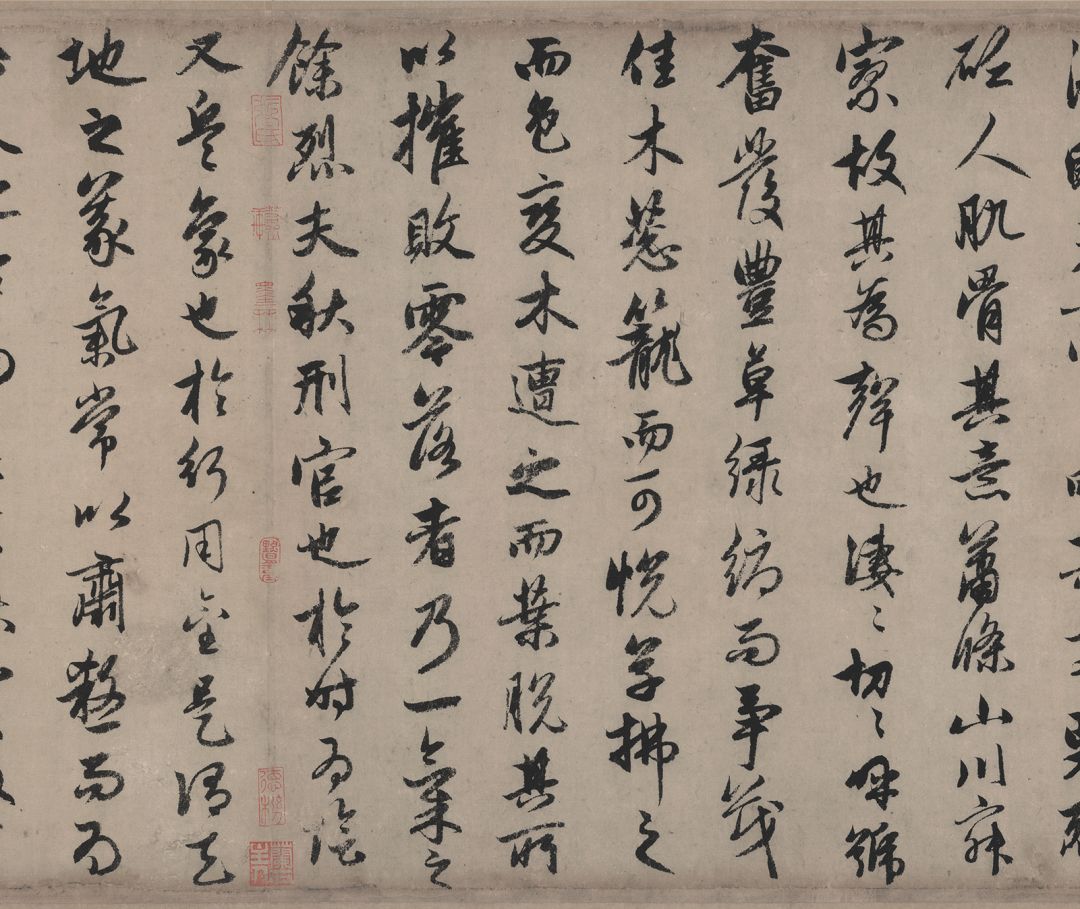 砭人肌骨其意蕭條山川寂
寥故其為聲也淒〻切〻呼號
奮發豐草綠縟而爭茂
佳木葱籠而可悅草拂之
而色變木遭之而葉脫其所
以摧敗零落者乃一氣之
餘烈夫秋刑官也於時為陰
又兵象也於行用金是謂天
地之義氣常以肅殺而為